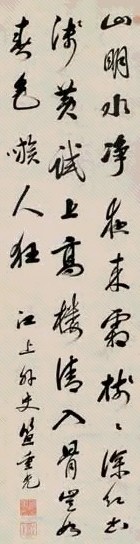 山明水净夜来霜樹々深紅出
淺黃試上高樓清入骨豈如
春色嗾人狂
江上外史笪重光